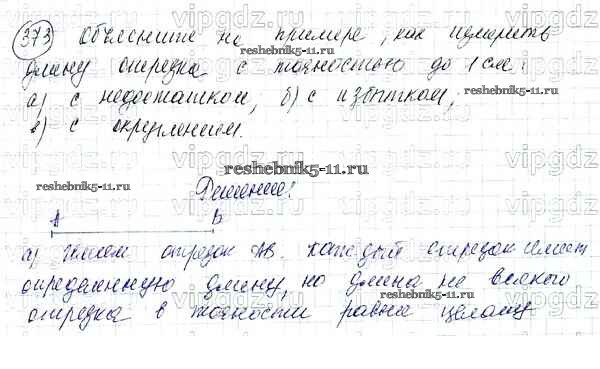 373 Объясните на примере, как измерить
длину отрезка с точностью до 1 см:
а) с недостатком, б) с избытком,
в) с округлением.
Решение:
A B
а) Имеем отрезок АВ. Каждый отрезок имеет
определенную длину, но длина не всякого
отрезка в точности равна целому
vipgdz.ru
reshebnik5-11.ru